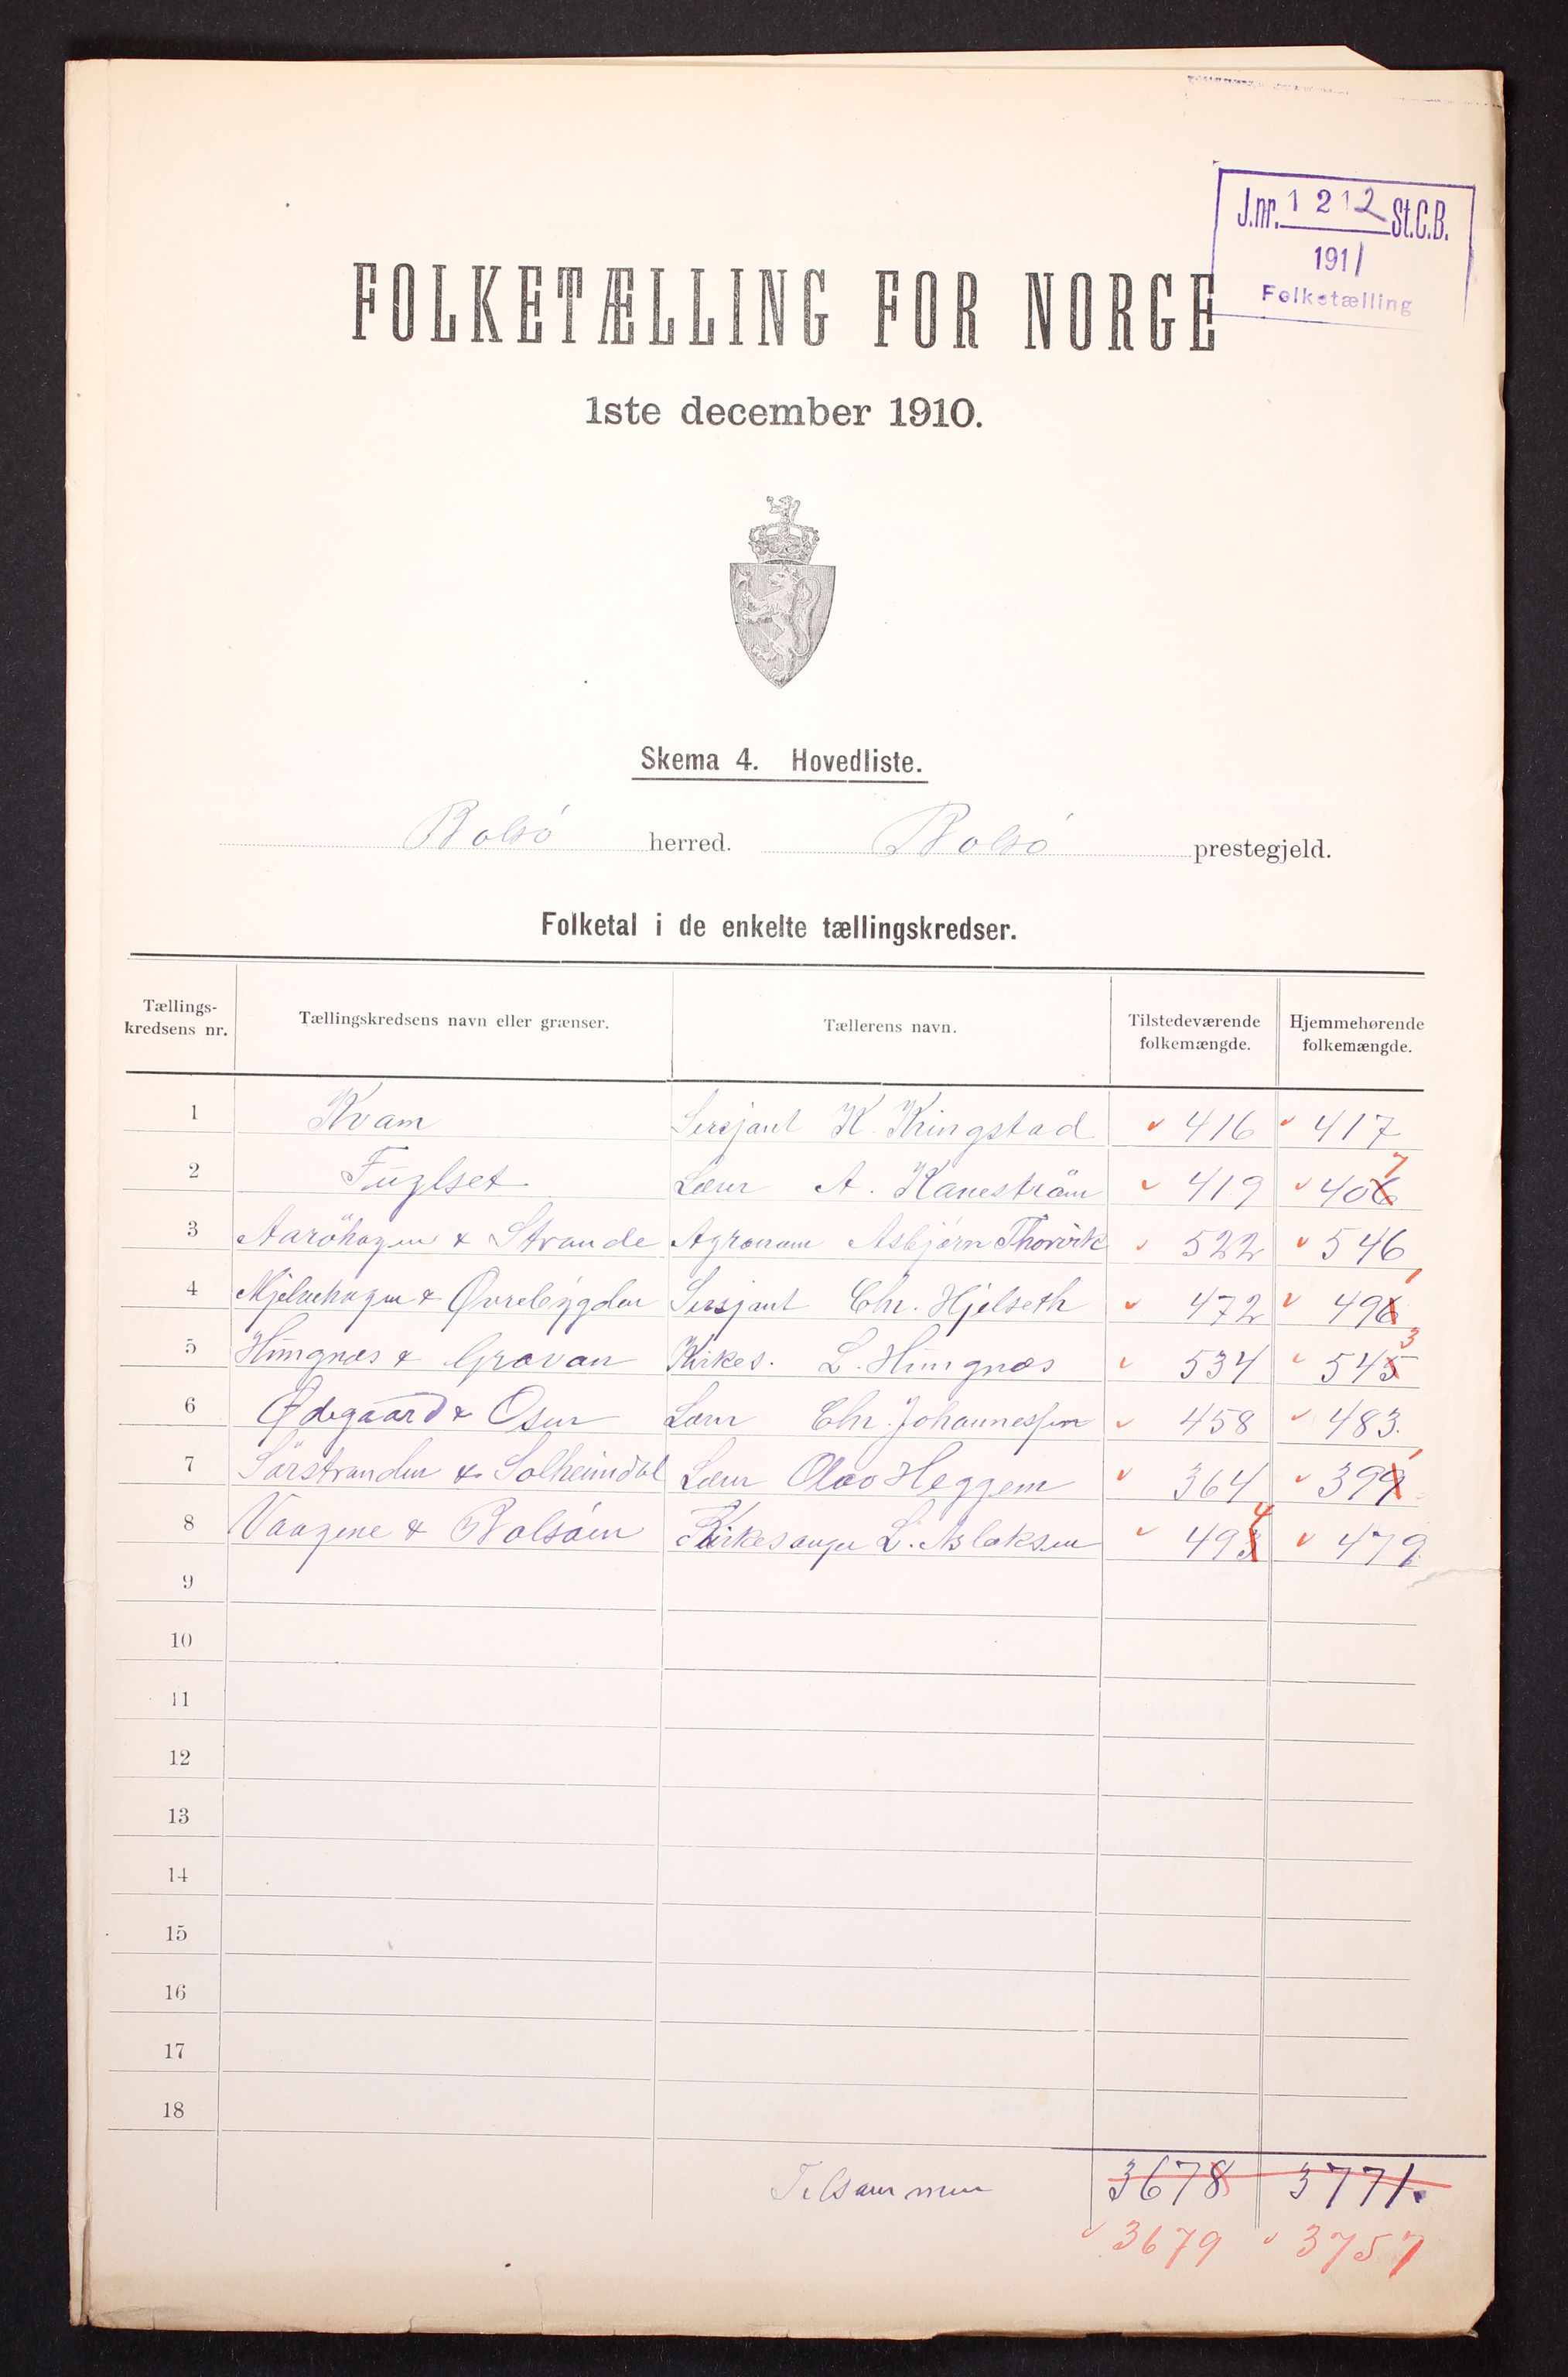 J.nr. 1212 St.C.B.
1911
Folketælling
FOLKETÆLLING FOR NORGE
1ste december 1910.
Skema 4. Hovedliste.
Bolsö herred. Bolsö prestegjeld.
Folketal i de enkelte tællingskredser.
Tællings-kredsens nr. Tællingskredsens navn eller grænser. Tællerens navn. Tilstedeværende folkemængde. Hjemmehørende folkemængde.
1 Kvam Sersjant K. Kringstad 416 417
2 Fuglset Lærer A. Kaneström 419 406 7
3 Aaröhagen & Strande Agronom Asbjörn Thorvik 522 546
4 Mjelvehagen & Øvrebygden Sersjant Chr. Hjelseth 472 496 1
5 Hungnæs & Gravan Kirkes. L. Hungnæs 534 545 3
6 Ødegaard & Osen Lærer Chr. Johannessen 458 483.
7 Sörstranden & Solheimdal Lærer Olav Heggem 364 399 1
8 Vaagene & Bolsöen Kirkesanger L. Aslaksen 493 4 479
9
10
11
12
13
14
15
16
17
18
Tilsammen 3678 3771.
3679 3757